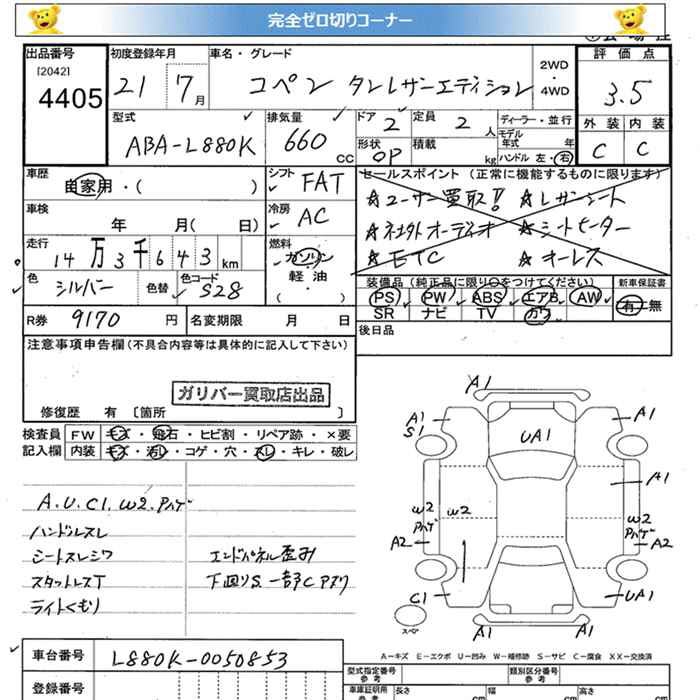 完全ゼロ切りコーナー
出品番号
[2042]
4405
初度登録年月
21 7月
車名・グレード
コペン タンレザーエディション
2WD
・
4WD
評価点
3.5
外装 内装
C C
型式
ABA-L880K
排気量
660 CC
ドア 2
形状 OP
定員 2 人
積載 kg
ディーラー・並行
モデル年式 年
ハンドル 左・右
車歴
自家用・( )
シフト FAT
車検
年 月( 日)
冷房 AC
走行
14万3千643km
燃料
ガソリン
軽油
( )
色
シルバー
色替
色コード
S28
セールスポイント(正常に機能するものに限ります)
☆ユーザー買取!! ☆レザーシート
☆社外オーディオ ☆シートヒーター
☆ETC ☆キーレス
装備品(純正品に限り○をつけてください)
PS PW ABS エアB AW
SR ナビ TV カワ
新車保証書
有・無
R券 9170 円
名変期限 月 日
後日品
注意事項申告欄(不具合内容等は具体的に記入して下さい)
ガリバー買取店出品
修復歴 有 〔箇所 〕
検査員 FW キズ・飛石・ヒビ割・リペア跡・×要
記入欄 内装 キズ・汚レ・コゲ・穴・スレ・キレ・破レ
A.U.C1.W2.Pハゲ
ハンドルスレ
シートスレシワ
エンドパネル歪み
スタットレスT
下回りS.一部Cアリ
ライトくもり
A1
A1
S1
UA1
A1
A1
W2
W2
W2
Pハゲ
Pハゲ
A2
A2
C1
UA1
スペア
A1
A1
A-キズ E-エクボ U-凹み W-補修跡 S-サビ C-腐食 XX-交換済
車台番号 L880K-0050853
登録番号
型式指定番号
参考
類別区分番号
参考
車庫証明用
参考
長さ cm
幅 cm
高さ cm